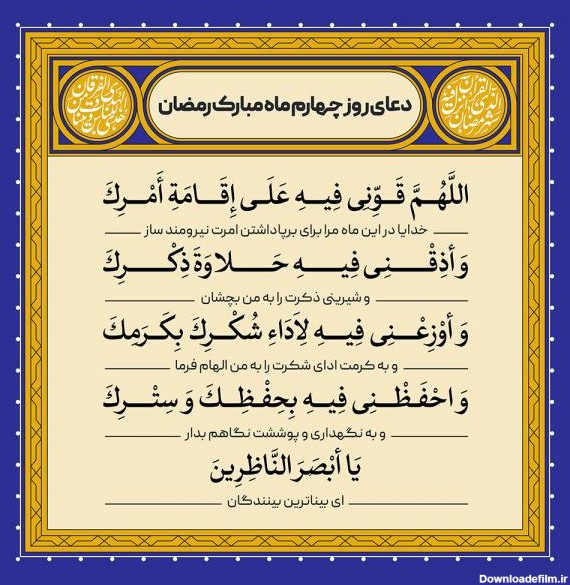 دعای روز چهارم ماه مبارک رمضان
اللَّهُمَّ قَوِّنِی فِیهِ عَلَی إِقَامَةِ أَمْرِكَ
خدایا در این ماه مرا برای برپاداشتن امرت نیرومند ساز
وَ أَذِقْنِی فِیهِ حَلاوَةَ ذِكْرِكَ
و شیرینی ذکرت را به من بچشان
وَ أَوْزِعْنِی فِیهِ لِأَدَاءِ شُكْرِكَ بِكَرَمِكَ
و به کرمت ادای شکرت را به من الهام فرما
وَ احْفَظْنِی فِیهِ بِحِفْظِكَ وَ سِتْرِكَ
و به نگهداری و پوششت نگاهم بدار
یَا أَبْصَرَ النَّاظِرِینَ
ای بیناترین بینندگان
Downloadefilm.ir